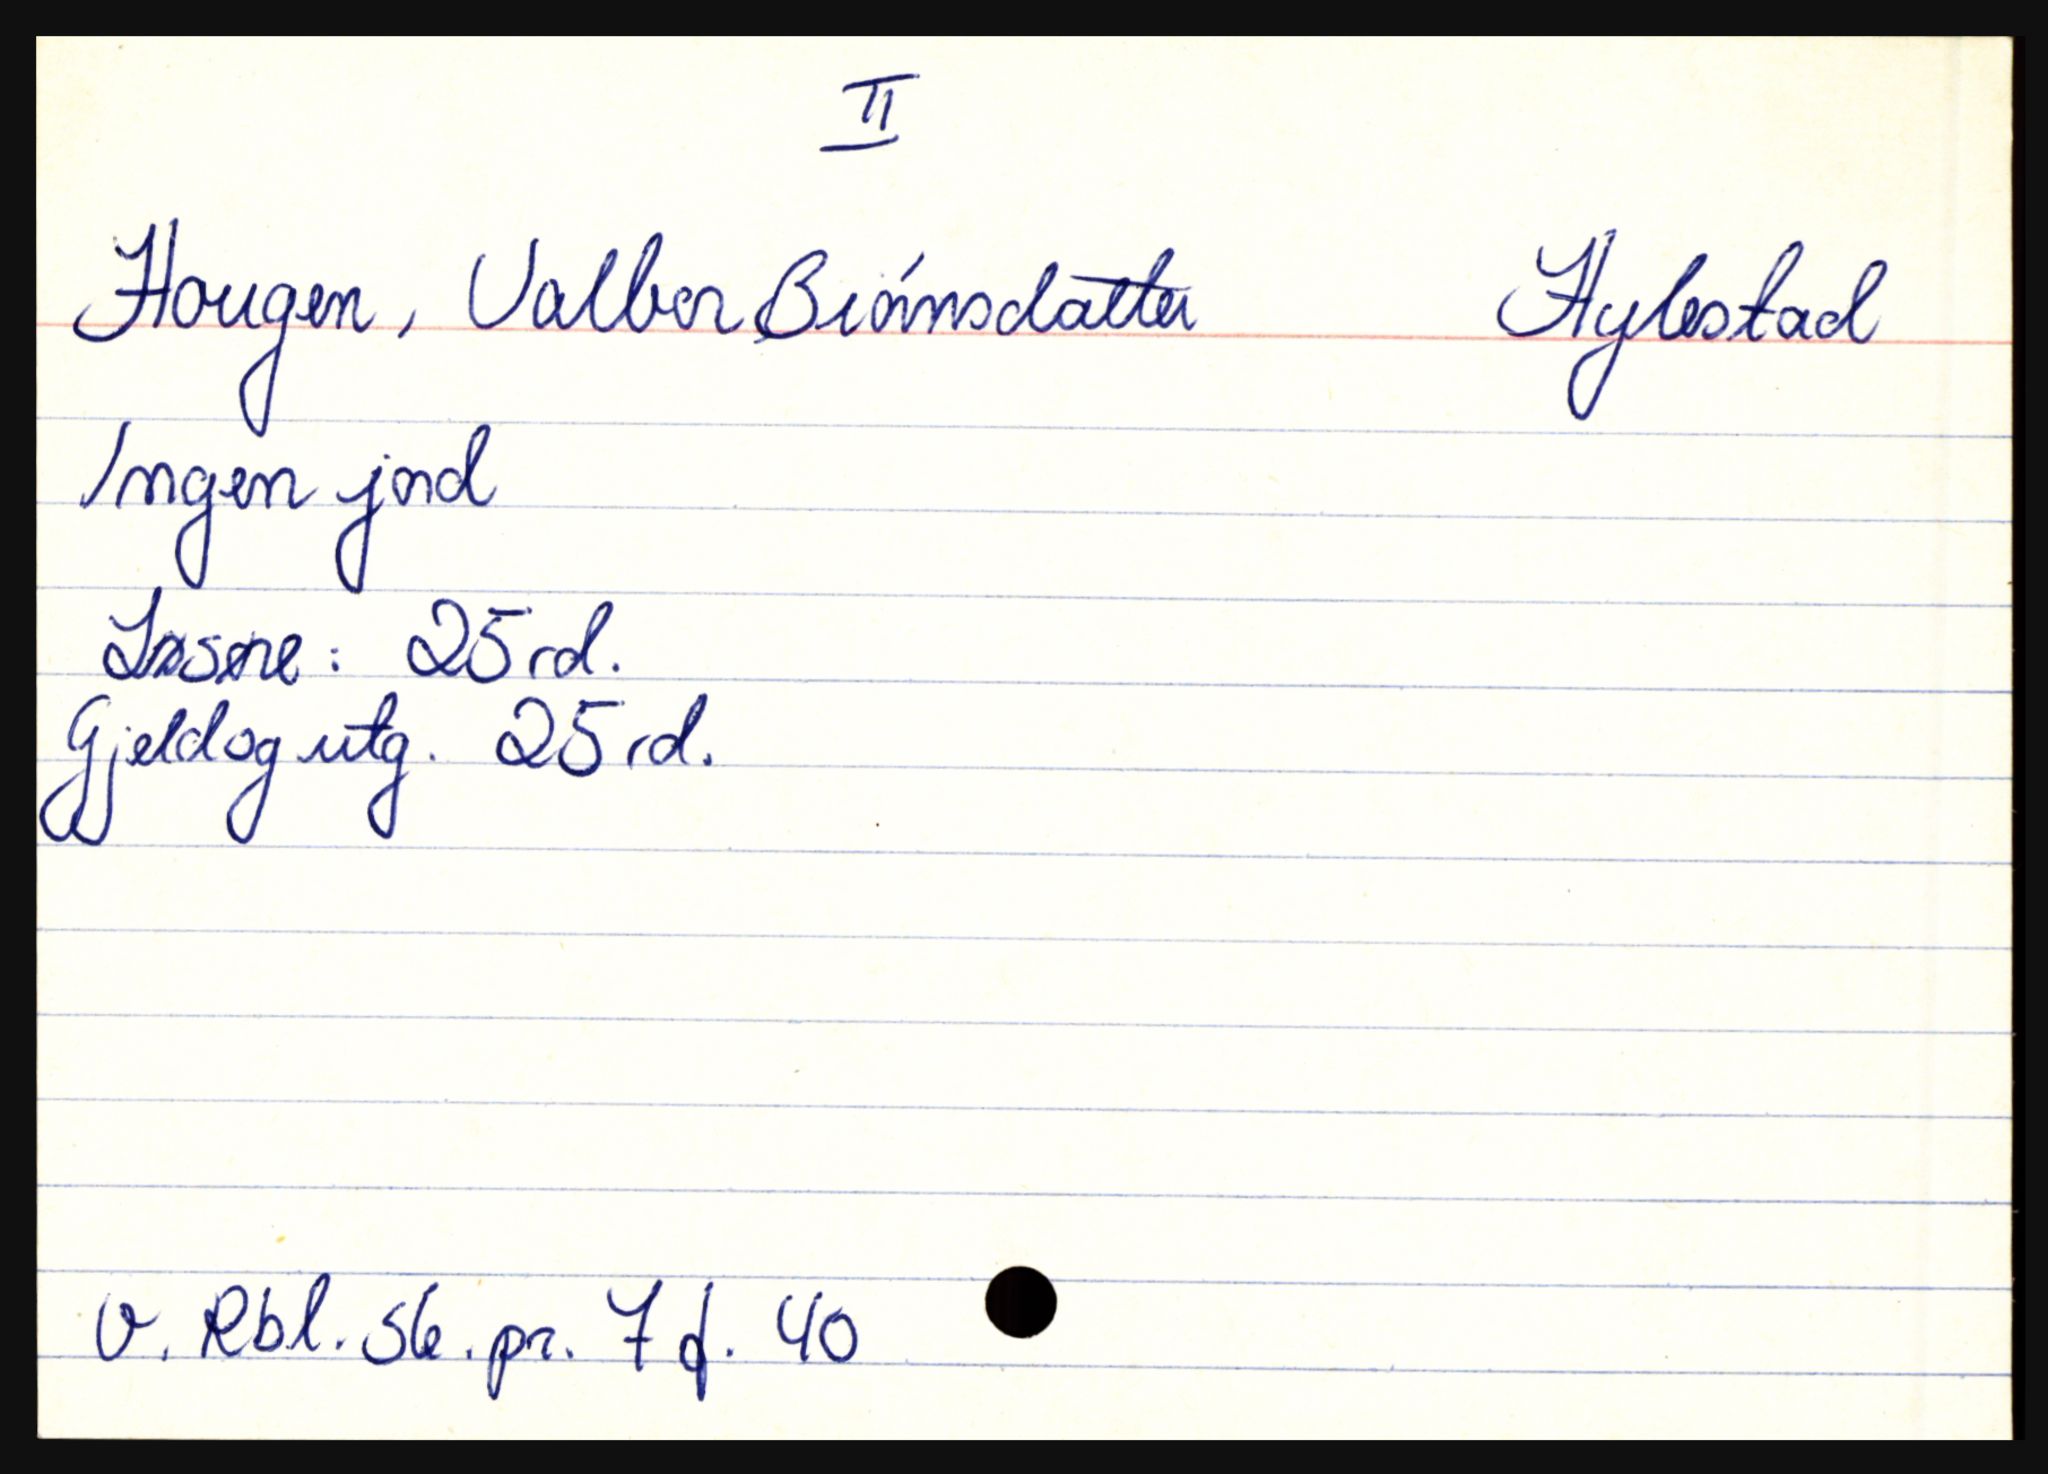 II
Hougen, Valbor Biórnsdatter Hylestad
Ingen jord
Løsøre: 25 rd.
Gjeld og utg. 25 rd.
V. Rbl. sk. pr. 7 f. 40